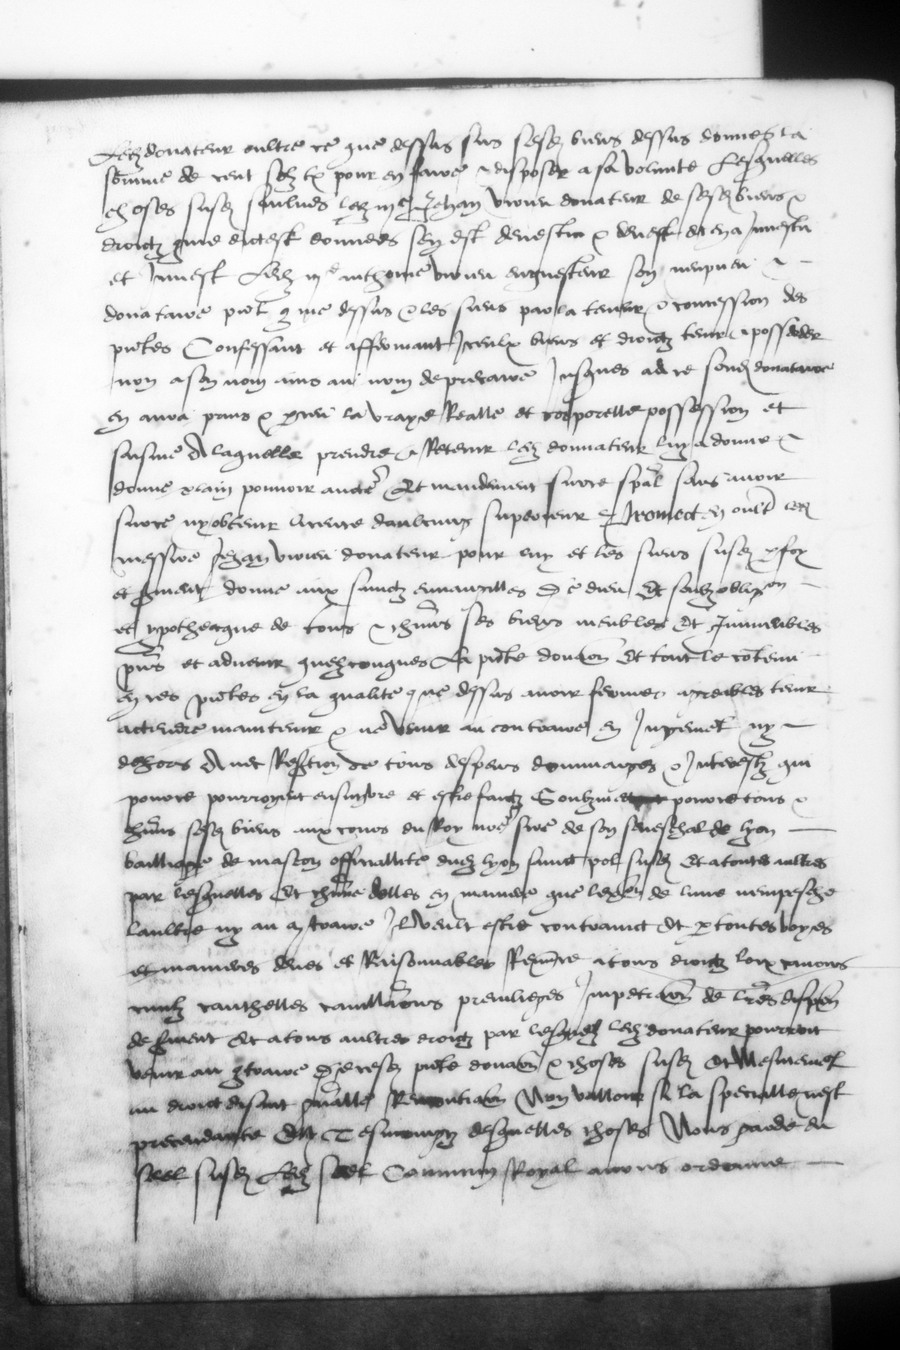 Led donateur oultre ce que dessus sus sesd biens dessus donnes la
somme de cent solz tz pour en faire & disposer a sa volunte Lesquelles
choses susd saulves led me Jehan donateur de sesd biens &
droictz que dict est donnees sen est devestu & devest et en a Investu
et Invest Led me anthoine enquesteur son nepveu &
donataire pnt que dessus & les siens par la teneur & concession des
pntes Confessant et affermant Iceulx biens et droictz tenir & posseder
non a son nom ains au nom de precaire Jusques ad ce sond donataire
en aura prins & la vraye Realle et corporelle possession et
saisine A laquelle prendre & Retenir led donateur luy a donne &
donne plain pouvoir aucte Et mandement sur ce spal sans avoir
sur ce ny obtenir licence daulcung superieur & promect en oult led
messire Jehan donateur pour luy et les siens susd p foy
et sment donne aux sainctz euvangilles de dieu Et soubz oblig on
et ypothecque de tous & chuns ses biens meubles Et Immeubles
pns et advenir quelzconques La pnte donaon Et tout le contenu
en ces pntes en la qualite que dessus avoir fermes agreables tenir
actendre maintenir & ne venir au contraire en Jugement ny
dehors Avec Reffection de tous despens dommaiges & Interestz qui
pource pourroyent ensuyvre et estre faictz Soubzmect pource tous &
chuns sesd biens aux cours du Roy nre sire de son seneschal de lyon
bailliage de mascon officiallite dud lyon sainct pol susd Et a toutes aultres
par lesquelles Et chune delles en maniere que lexcon de lune nempesche
laultre ny au contraire Il veult estre contrainct Et p toutes voyes
et manieres deues et Raisonnables Renunce a tous droictz loix canons
civilz cauthelles cavillaons previleges Impetraon de lres dispen
de sment Et a tous aultres droictz par lesquelz led donateur pourroit
venir au contraire de cesd pnte donaon & choses susd Et Mesmement
au droict disant gnalle Renontiaon Non valloir si la specialle nest
precendante En Tesmoing desquelles choses Nous garde du
seel susd Led seel Commun Royal avons ordonne